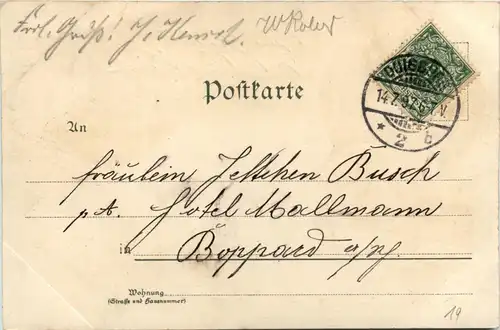 Frdl. Gruß! J. Kenrot.
W Kolev
DUISBURG
14.7.97.6-7V.
* 2 b
Postkarte
An
Fräulein Jettchen Busch
p. A. Hotel Mallmann
in Boppard a/Rh.
Wohnung
(Straße und Hausnummer)
19